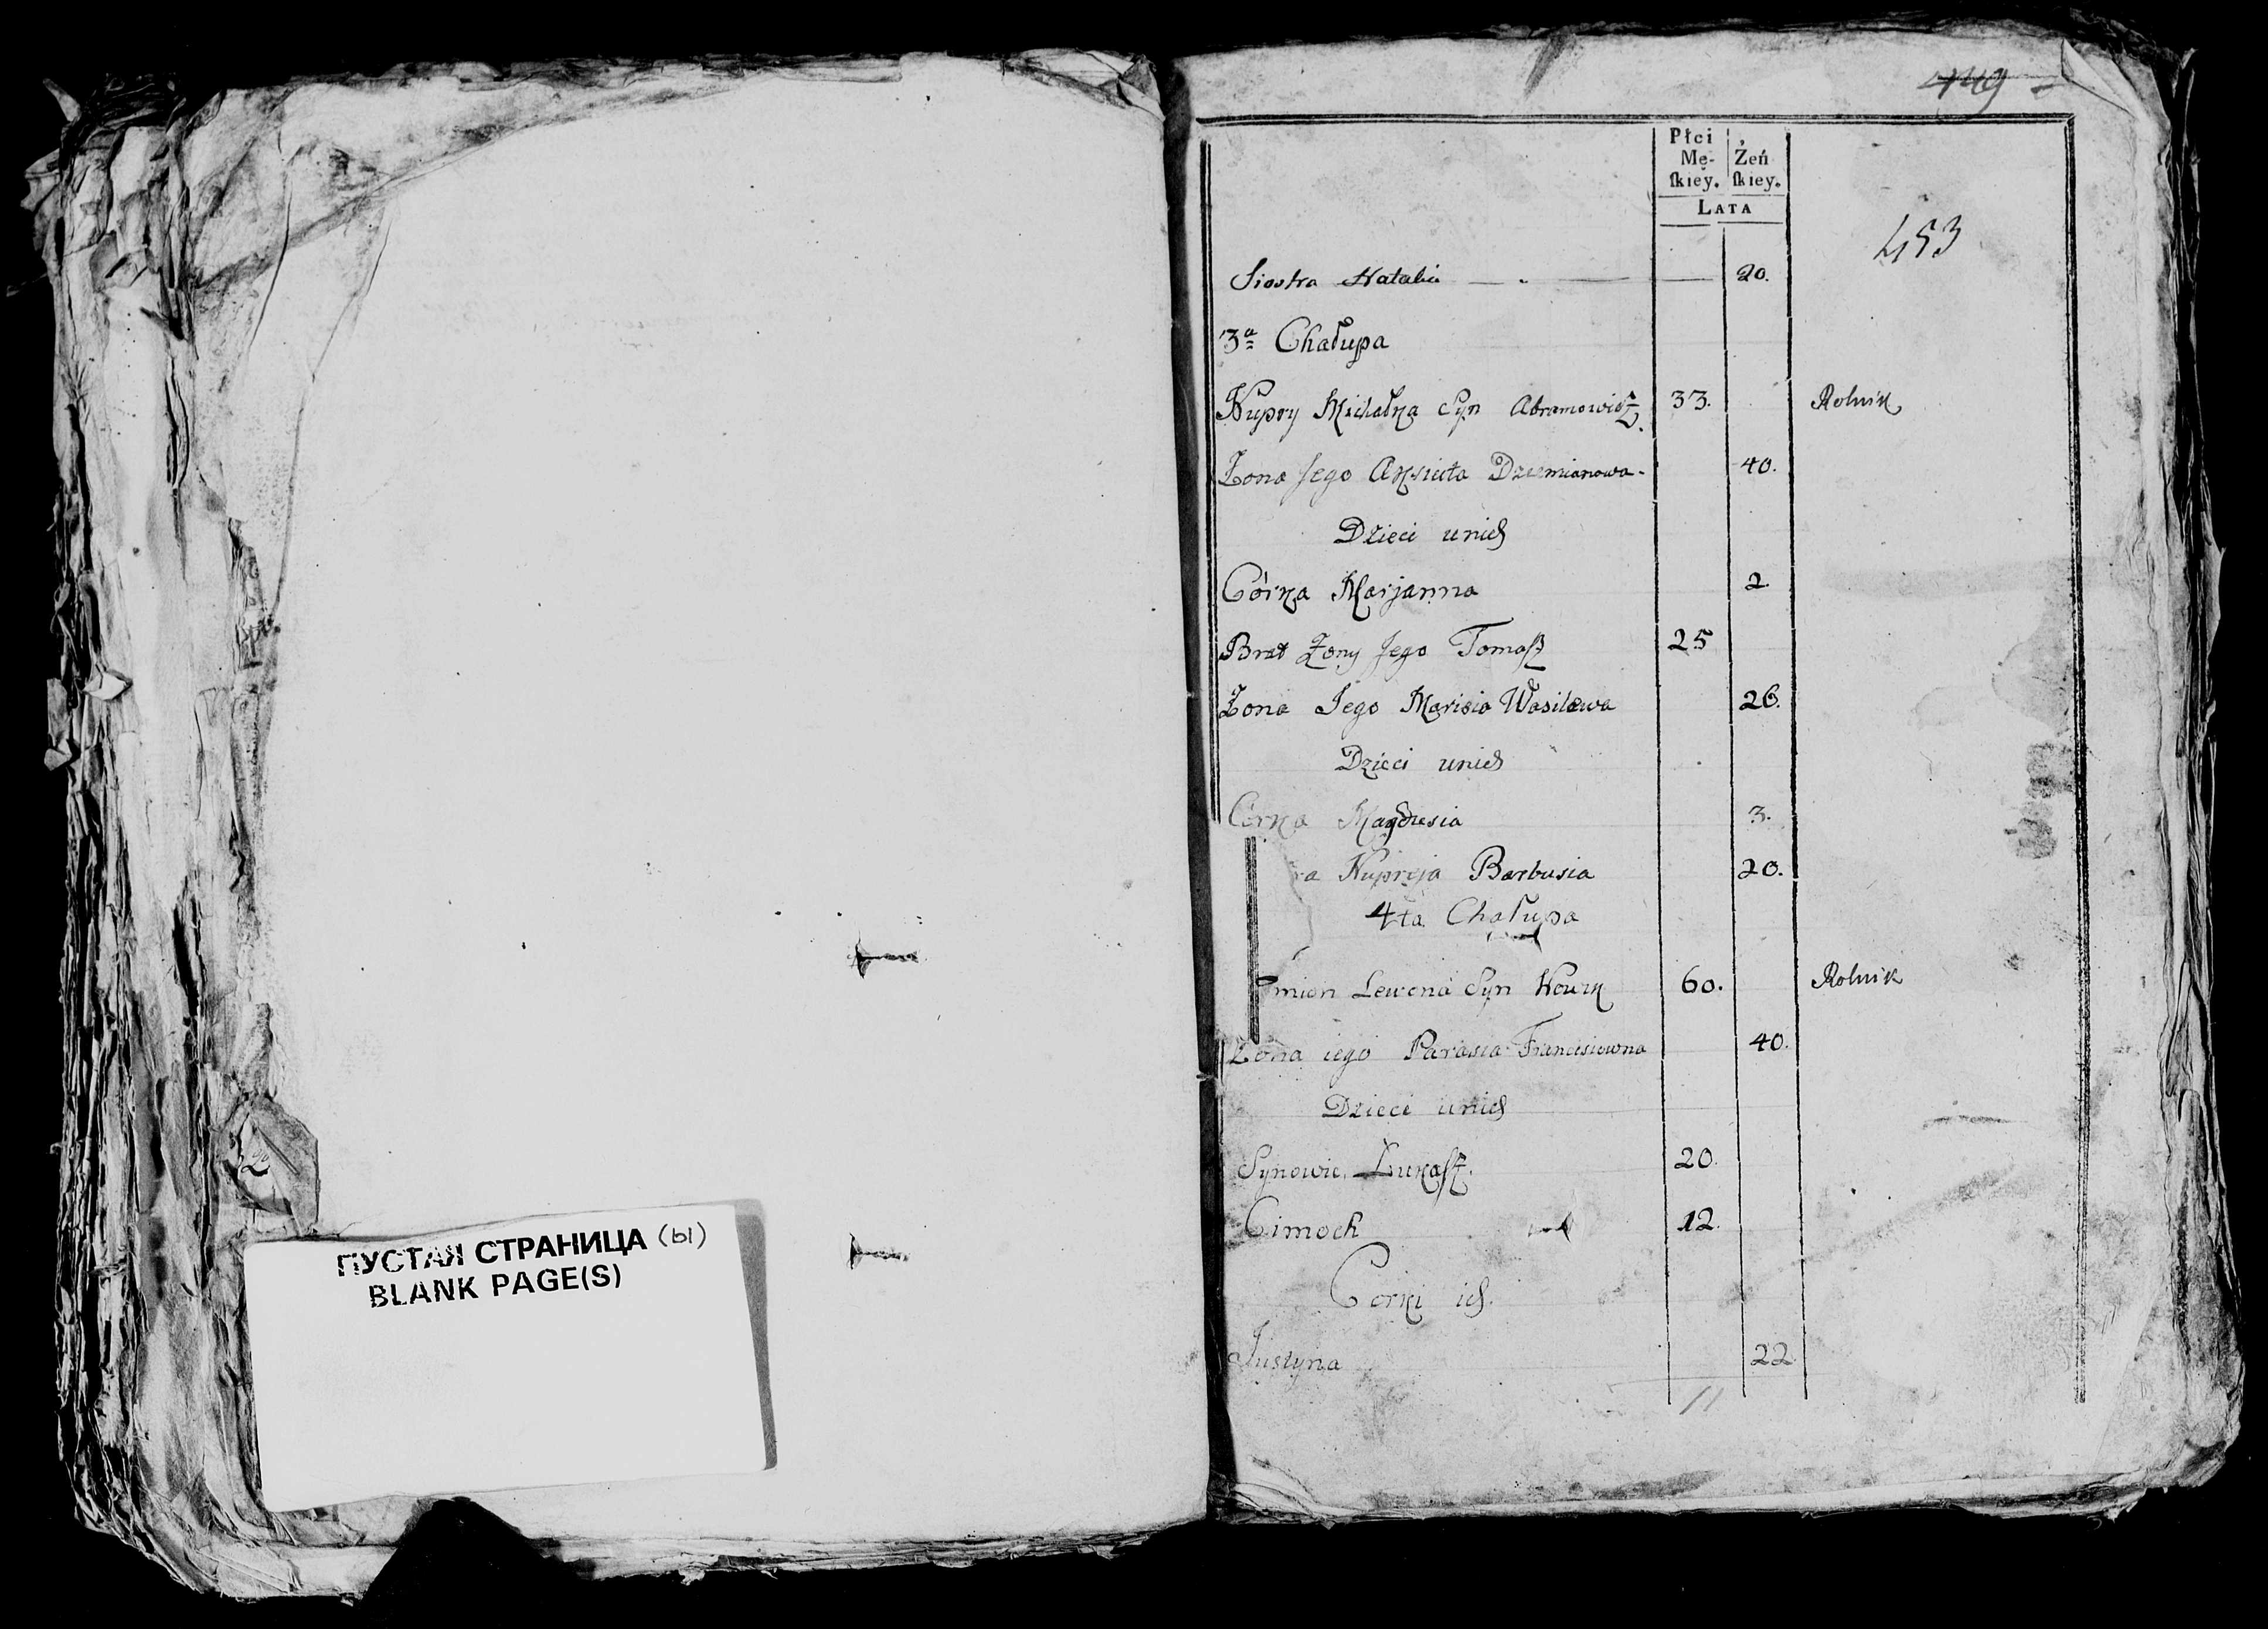 ПУСТАЯ СТРАНИЦА (ы)
BLANK PAGE(S)
449
453
Płci
Mę- Żeń
ſkiey. ſkiey.
LATA
Siostra Natalia — . — 20.
3a Chałupa
Kupry Michałka Syn Abramowicz. 33. Rolnik
Żona Jego Aksiuta Dziemianowa - 40.
Dzieci unich
Córka Marjanna 2
Brat Żony Jego Tomaſz 25
Żona Jego Marisia Wasilewa 26.
Dzieci unich
Córka Magdusia 3.
ra Kupreja Barbusia 20.
4ta Chałupa
mion Lewona Syn 60. Rolnik
Żona iego Parasia Francisiowna 40.
Dzieci unich
Synowie Łukaſz. 20.
Cimoch 12.
Corki ich.
Justyna 22
11